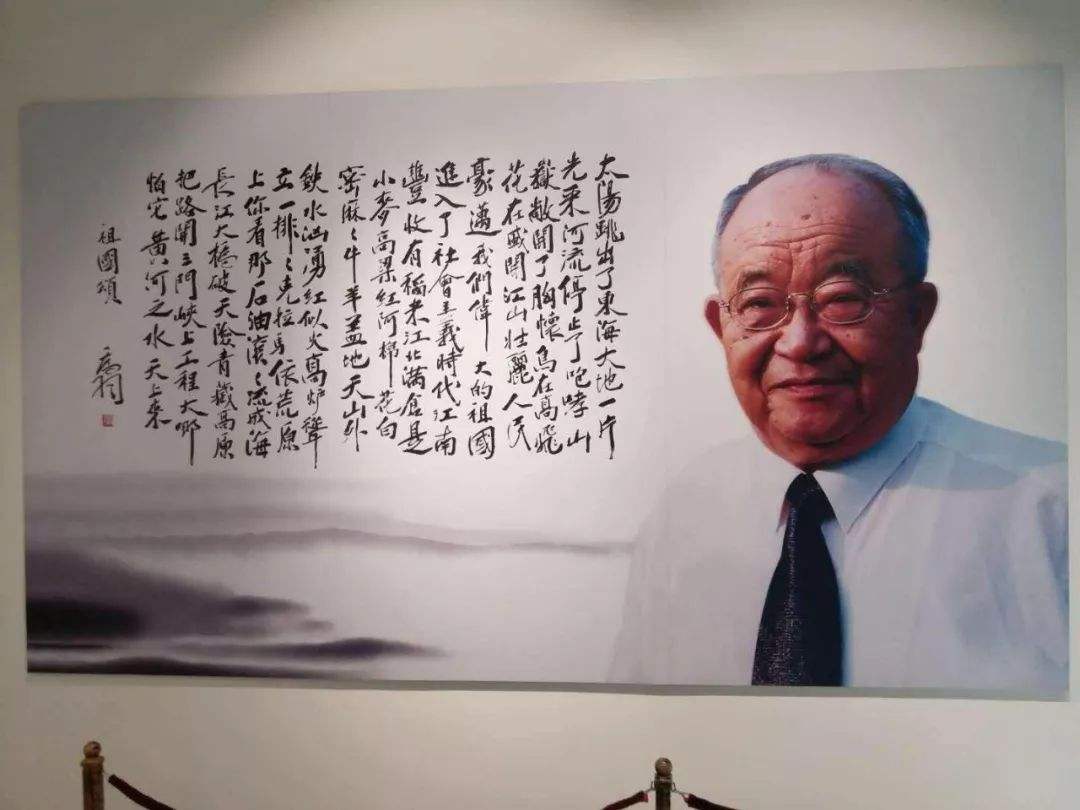 太陽跳出了東海大地一片
光采河流停止了咆哮山
嶽敞開了胸懷鳥在高飛
花在盛開江山壯麗人民
豪邁我們偉大的祖國
進入了社會主義時代江南
豐收有稻米江北滿倉是
小麥高粱紅阿棉花白
密麻々牛羊盖地天山外
鉄水汹勇紅似火高炉聳
立一排々克拉馬依荒原
上你看那石油滾々流成海
長江大橋破天險青藏高原
把路開三門峽上工程大哪
怕它黄河之水天上來
祖國頌
乔羽